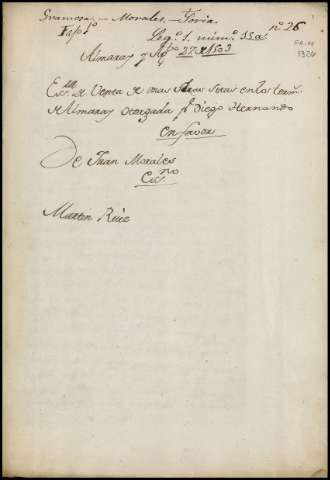 Gramosa. — Morales. — Soria. nº 26
Fajº 1º Legº. 1. númº. 35a
Almaray y Agº 27 de 1503
Escra. de Venta de unas tierras en los term.
de Almaray otorgada pr. Diego Hernando
en favor
De Juan Morales
Esc.no
Martin Ruiz